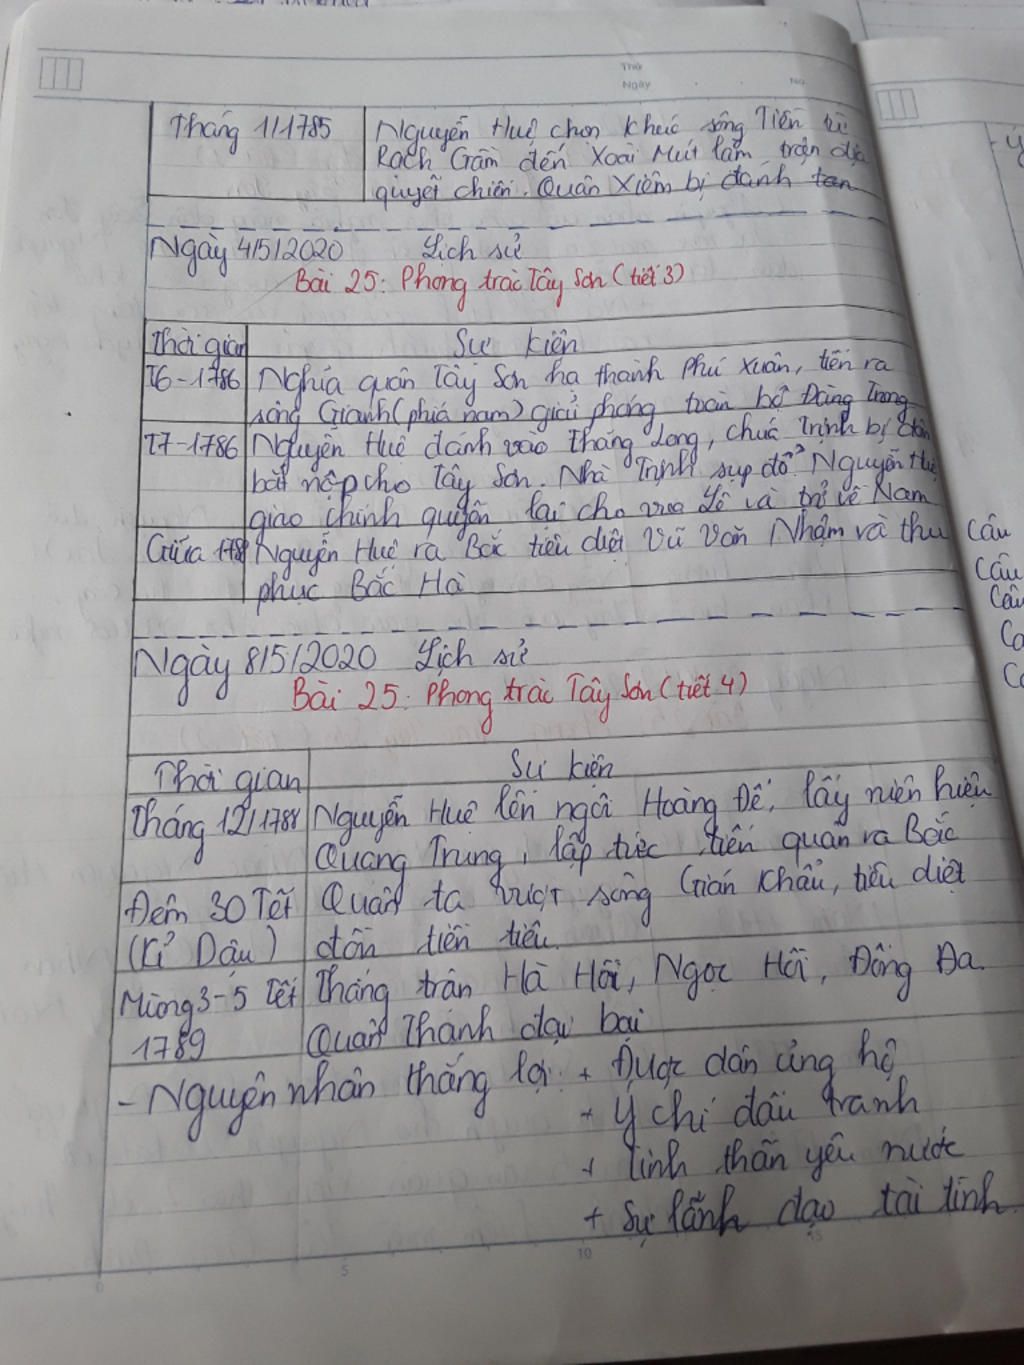 Thứ
Ngày No
Tháng 1/1785 Nguyễn Huệ chọn khúc sông Tiền từ
Rạch Gầm đến Xoài Mút làm trận địa
quyết chiến. Quân Xiêm bị đánh tan
Ngày 4/5/2020 Lịch sử
Bài 25: Phong trào Tây Sơn (tiết 3)
Thời gian Sự kiện
T6-1786 Nghĩa quân Tây Sơn hạ thành Phú Xuân, tiến ra
sông Gianh (phía nam) giải phóng toàn bộ Đàng Trong
T7-1786 Nguyễn Huệ đánh vào Thăng Long, chúa Trịnh bị dân
bắt nộp cho Tây Sơn. Nhà Trịnh sụp đổ. Nguyễn Huệ
giao chính quyền lại cho vua Lê và trở về Nam
Giữa 178 Nguyễn Huệ ra Bắc tiêu diệt Vũ Văn Nhậm và thu
phục Bắc Hà
Ngày 8/5/2020 Lịch sử
Bài 25: Phong trào Tây Sơn (tiết 4)
Thời gian Sự kiện
Tháng 12/1788 Nguyễn Huệ lên ngôi Hoàng Đế, lấy niên hiệu
Quang Trung, lập tức tiến quân ra Bắc
Đêm 30 Tết Quân ta vượt sông Gián Khẩu, tiêu diệt
(Kỉ Dậu) đồn tiền tiêu.
Mùng 3-5 Tết Thắng trận Hà Hồi, Ngọc Hồi, Đống Đa.
1789 Quân Thanh đại bại
- Nguyên nhân thắng lợi: + Được dân ủng hộ
+ Ý chí đấu tranh
+ Tinh thần yêu nước
+ Sự lãnh đạo tài tình
0 5 10 15
Câu
Câu
Câu